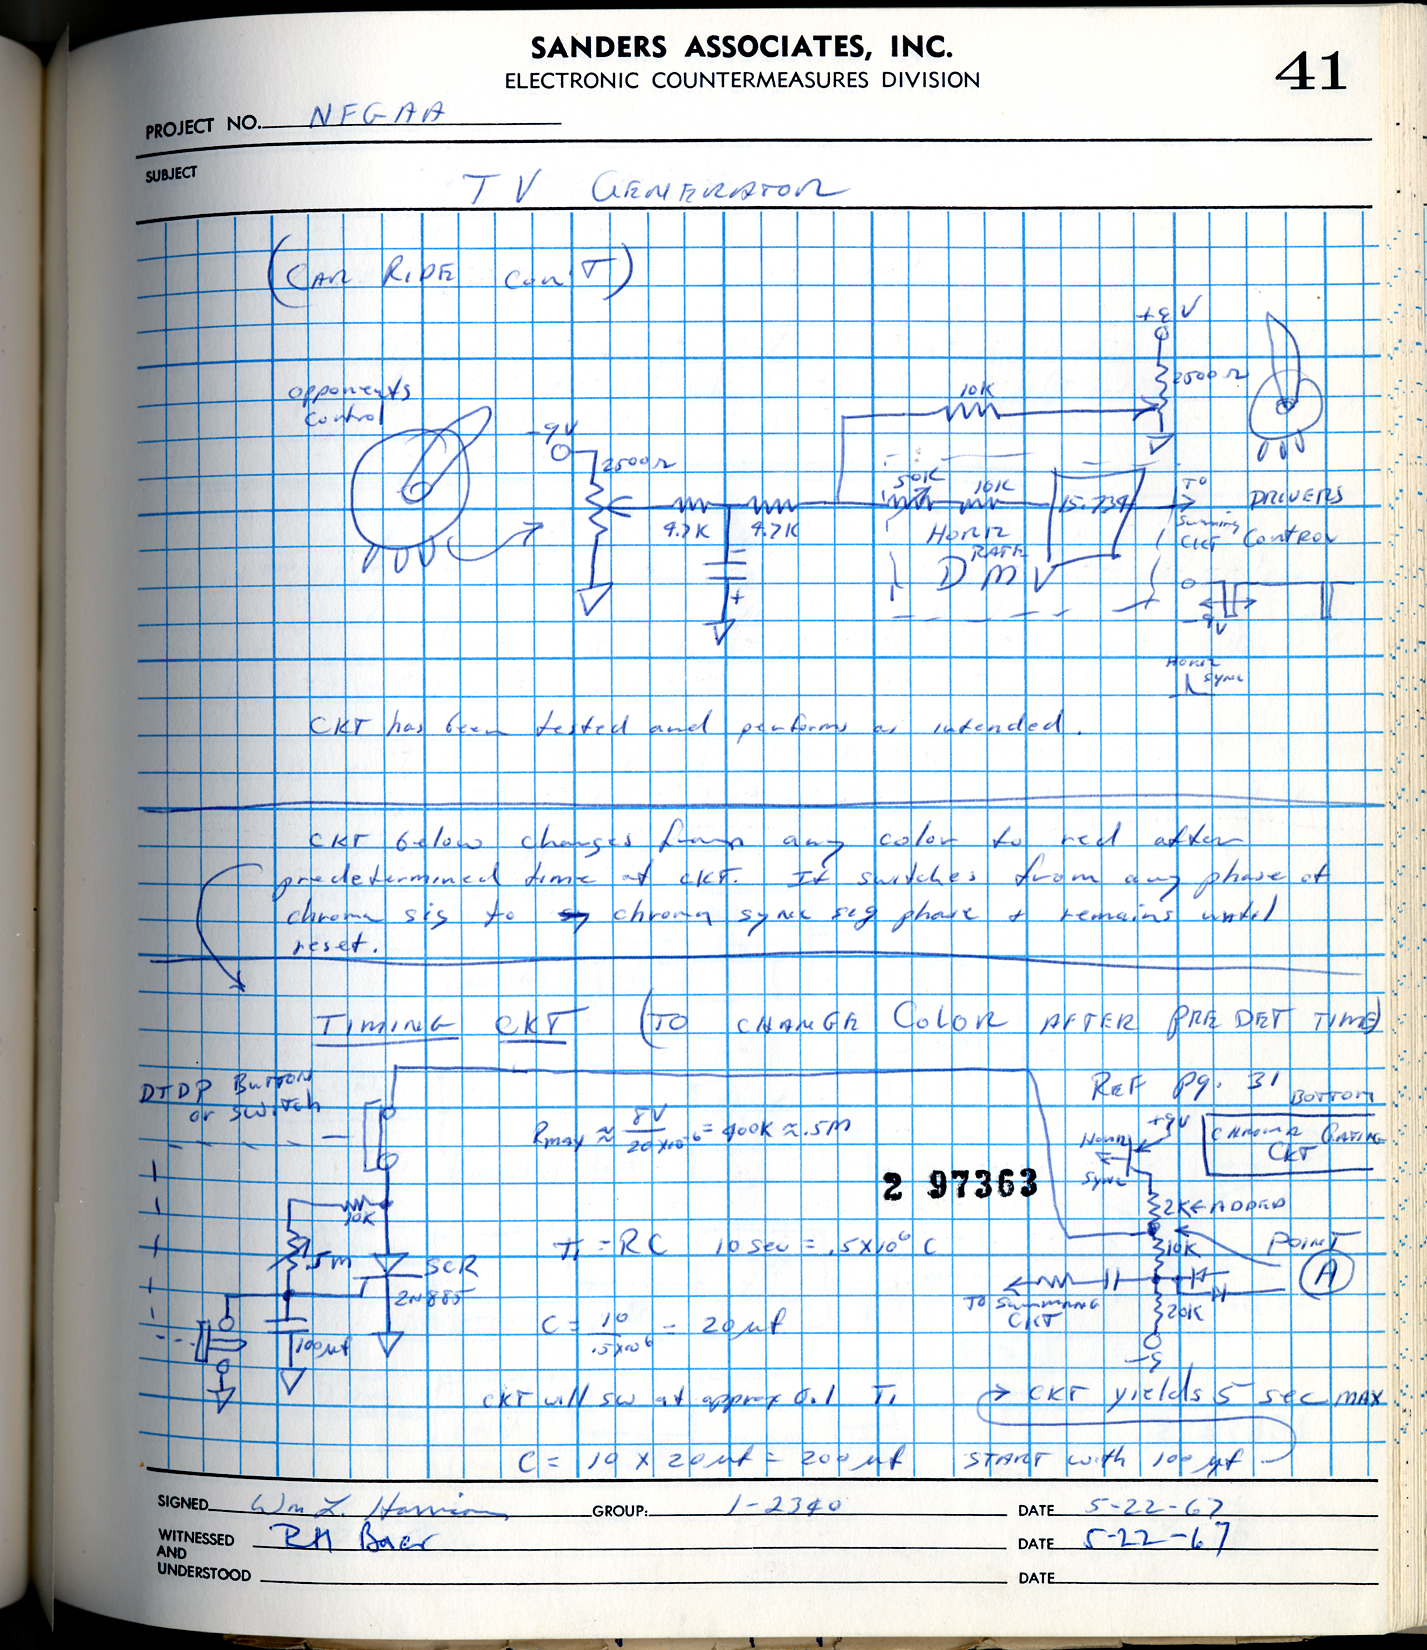 SANDERS ASSOCIATES, INC.
ELECTRONIC COUNTERMEASURES DIVISION
41
PROJECT NO. NFGAA
SUBJECT
TV GENERATOR
(CAR RIDE CON'T)
+9V
2500Ω
10K
opponents
control
-9V
2500Ω
4.7K
4.7K
50K
10K
15.734
HORIZ
RATE
DMV
TO
Summing
CKT
DRIVERS
CONTROL
0
-9V
HORIZ
SYNC
CKT has been tested and performs as intended.
CKT below changes from any color to red after
predetermined time of CKT. It switches from any phase of
chroma sig to chroma sync sig phase + remains until
reset.
TIMING CKT (TO CHANGE COLOR AFTER PREDET TIME)
DTDP BUTTON
or SWITCH
REF Pg. 31
BOTTOM
CHROMA GATING
CKT
+9V
HORIZ
SYNC
Rmax ≈ 8V / 20x10⁻⁶ = 400K ≈ .5M
2 97363
10K
2K ← ADDED
.5M
SCR
2N885
T1 = RC 10 sec = .5x10⁶ C
10K
POINT
A
TO SUMMING
CKT
20K
-9
100µf
C = 10 / .5x10⁶ = 20µf
CKT will sw at approx 0.1 T1
→ CKT yields 5 sec MAX
C = 10 x 20µf = 200µf START with 100µf
SIGNED Wm L. Harrison GROUP: 1-2340 DATE 5-22-67
WITNESSED RH Baer DATE 5-22-67
AND
UNDERSTOOD DATE